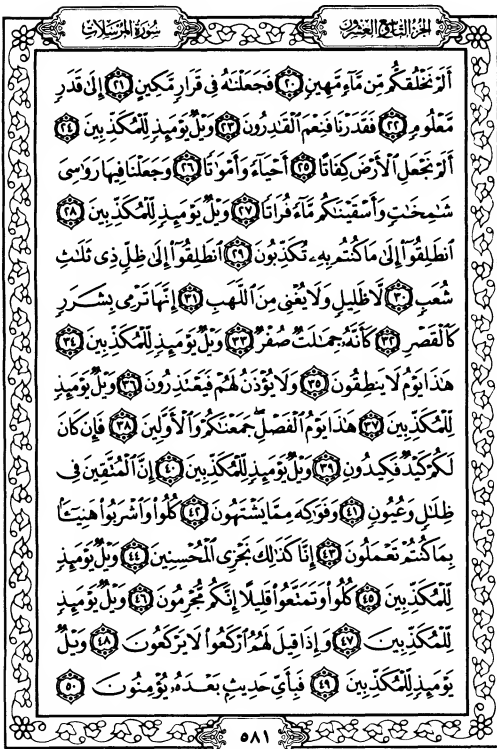 الجزء التاسع والعشرون
سورة المرسلات
أَلَمْ نَخْلُقكُّم مِّن مَّآءٍ مَّهِينٍ ٢٠ فَجَعَلْنَٰهُ فِى قَرَارٍ مَّكِينٍ ٢١ إِلَىٰ قَدَرٍ
مَّعْلُومٍ ٢٢ فَقَدَرْنَا فَنِعْمَ ٱلْقَٰدِرُونَ ٢٣ وَيْلٌ يَوْمَئِذٍ لِّلْمُكَذِّبِينَ ٢٤
أَلَمْ نَجْعَلِ ٱلْأَرْضَ كِفَاتًا ٢٥ أَحْيَآءً وَأَمْوَٰتًا ٢٦ وَجَعَلْنَا فِيهَا رَوَٰسِىَ
شَٰمِخَٰتٍ وَأَسْقَيْنَٰكُم مَّآءً فُرَاتًا ٢٧ وَيْلٌ يَوْمَئِذٍ لِّلْمُكَذِّبِينَ ٢٨
ٱنطَلِقُوٓا۟ إِلَىٰ مَا كُنتُم بِهِۦ تُكَذِّبُونَ ٢٩ ٱنطَلِقُوٓا۟ إِلَىٰ ظِلٍّ ذِى ثَلَٰثِ
شُعَبٍ ٣٠ لَّا ظَلِيلٍ وَلَا يُغْنِى مِنَ ٱللَّهَبِ ٣١ إِنَّهَا تَرْمِى بِشَرَرٍ
كَٱلْقَصْرِ ٣٢ كَأَنَّهُۥ جِمَٰلَتٌ صُفْرٌ ٣٣ وَيْلٌ يَوْمَئِذٍ لِّلْمُكَذِّبِينَ ٣٤
هَٰذَا يَوْمُ لَا يَنطِقُونَ ٣٥ وَلَا يُؤْذَنُ لَهُمْ فَيَعْتَذِرُونَ ٣٦ وَيْلٌ يَوْمَئِذٍ
لِّلْمُكَذِّبِينَ ٣٧ هَٰذَا يَوْمُ ٱلْفَصْلِ ۖ جَمَعْنَٰكُمْ وَٱلْأَوَّلِينَ ٣٨ فَإِن كَانَ
لَكُمْ كَيْدٌ فَكِيدُونِ ٣٩ وَيْلٌ يَوْمَئِذٍ لِّلْمُكَذِّبِينَ ٤٠ إِنَّ ٱلْمُتَّقِينَ فِى
ظِلَٰلٍ وَعُيُونٍ ٤١ وَفَوَٰكِهَ مِمَّا يَشْتَهُونَ ٤٢ كُلُوا۟ وَٱشْرَبُوا۟ هَنِيٓـًٔا
بِمَا كُنتُمْ تَعْمَلُونَ ٤٣ إِنَّا كَذَٰلِكَ نَجْزِى ٱلْمُحْسِنِينَ ٤٤ وَيْلٌ يَوْمَئِذٍ
لِّلْمُكَذِّبِينَ ٤٥ كُلُوا۟ وَتَمَتَّعُوا۟ قَلِيلًا إِنَّكُم مُّجْرِمُونَ ٤٦ وَيْلٌ يَوْمَئِذٍ
لِّلْمُكَذِّبِينَ ٤٧ وَإِذَا قِيلَ لَهُمُ ٱرْكَعُوا۟ لَا يَرْكَعُونَ ٤٨ وَيْلٌ
يَوْمَئِذٍ لِّلْمُكَذِّبِينَ ٤٩ فَبِأَىِّ حَدِيثٍۭ بَعْدَهُۥ يُؤْمِنُونَ ٥٠
٥٨١